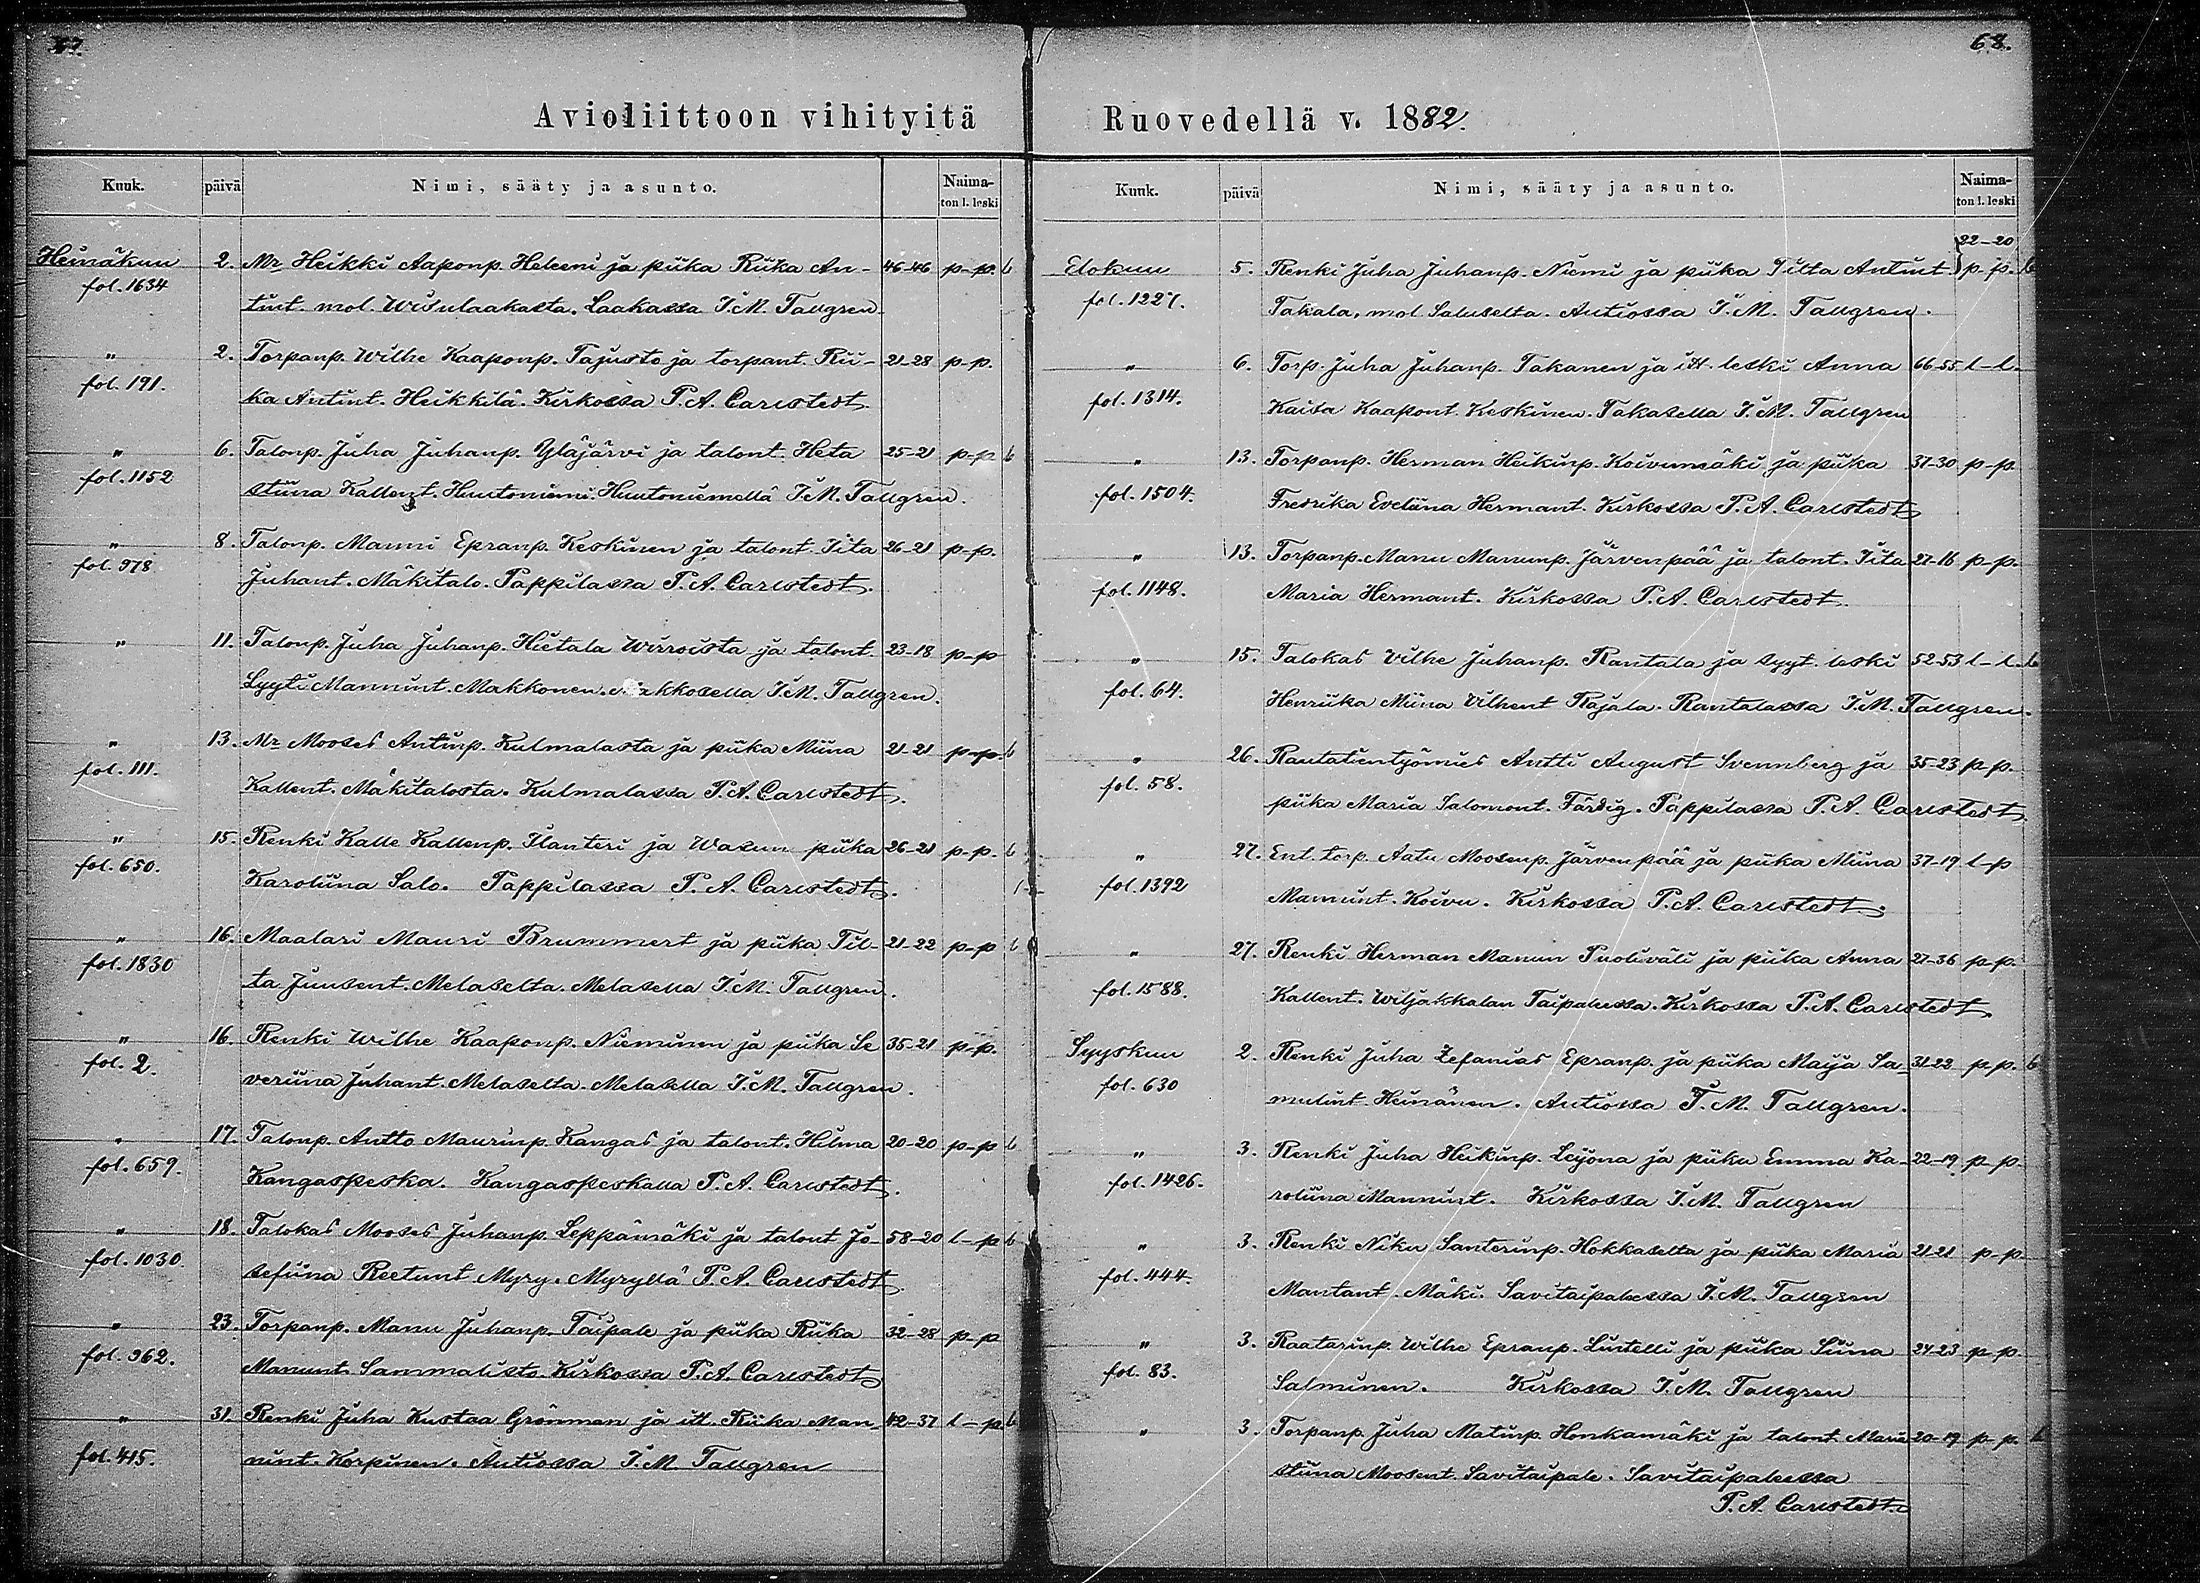 67.
Avioliittoon vihityitä
Kuuk. päivä Nimi, sääty ja asunto. Naima-
ton l. leski
Heinäkuu 2. Mr Heikki Aaponp. Heleeni ja piika Riika An- 46-46 p-p. b
fol. 1634 tint. mol. Wisulaakasta. Laakassa I.M. Tallgren
" 2. Torpanp. Wilhe Kaaponp. Tajusto ja torpant. Rii- 21-28 p-p.
fol. 191. ka Antint. Heikkilä. Kirkossa P.A. Carlstedt.
" 6. Talonp. Juha Juhanp. Yläjärvi ja talont. Heta 25-21 p-p b
fol. 1152 stiina Kallent. Huutoniemi. Huutoniemellä I.M. Tallgren.
" 8. Talonp. Manni Epranp. Keskinen ja talont. Iita 26-21 p-p.
fol. 978 Juhant. Mäkitalo. Pappilassa P.A. Carlstedt.
" 11. Talonp. Juha Juhanp. Hietala Wirroista ja talont. 23-18 p-p
Lyyti Mannint. Makkonen. Makkosella I.M. Tallgren.
" 13. Mr Mooses Antinp. Kulmalasta ja piika Miina 21-21 p-p. b
fol. 111. Kallent. Mäkitalosta. Kulmalassa P.A. Carlstedt.
" 15. Renki Kalle Kallenp. Ilanteri ja Wasun piika 26-21 p-p. b
fol. 650. Karoliina Salo. Pappilassa P.A. Carlstedt.
" 16. Maalari Mauri Brummert ja piika Til- 21-22 p-p b
fol. 1830 ta Juusent. Melaselta. Melasella I.M. Tallgren.
" 16. Renki Wilhe Kaaponp. Nieminen ja piika Se 35-21 p-p.
fol. 2. veriina Juhant. Melaselta. Melasella I.M. Tallgren.
" 17. Talonp. Antto Maurinp. Kangas ja talont. Hilma 20-20 p-p b
fol. 659. Kangaspeska. Kangaspeskalla P.A. Carlstedt.
" 18. Talokas Mooses Juhanp. Leppämäki ja talont Jo- 58-20 l-p b
fol. 1030. sefiina Reetunt Myry. Myryllä P.A. Carlstedt
" 23. Torpanp. Manu Juhanp. Taipale ja piika Riika 32-28 p-p
fol. 962. Manunt. Sammalisto. Kirkossa P.A. Carlstedt
" 31. Renki Juha Kustaa Grönman ja itt. Riika Man- 42-37 l-p b
fol. 415. nint. Korpinen. Autiossa I.M. Tallgren
68.
Ruovedellä v. 1882.
Kuuk. päivä Nimi, sääty ja asunto. Naima-
ton l. leski
22-20
Elokuu 5. Renki Juha Juhanp. Niemi ja piika Iilta Antint. p-p. b
fol. 1227. Takala, mol. Saluselta. Autiossa I.M. Tallgren.
" 6. Torp. Juha Juhanp. Takanen ja itt. leski Anna 66-55 l-l.
fol. 1314. Kaisa Kaapont. Keskinen. Takasella I.M. Tallgren
" 13. Torpanp. Herman Heikinp. Koivumäki ja piika 37-30 p-p.
fol. 1504. Fredrika Eveliina Hermant. Kirkossa P.A. Carlstedt
" 13. Torpanp. Manu Manunp. Järvenpää ja talont. Iita 27-16 p-p.
fol. 1148. Maria Hermant. Kirkossa P.A. Carlstedt.
" 15. Talokas Vilhe Juhanp. Rantala ja syyt. leski 52-53 l-l. b
fol. 64. Henriika Miina Vilhent Rajala. Rantalassa I.M. Tallgren.
" 26. Rautatientyömies Antti August Svennberg ja 35-23 p-p.
fol. 58. piika Maria Salomont. Färdig. Pappilassa P.A. Carlstedt.
" 27. Ent. torp. Aatu Moosenp. Järvenpää ja piika Miina 37-19 l-p
fol. 1392 Mannint. Koivu. Kirkossa P.A. Carlstedt.
" 27. Renki Herman Manun Puoliväli ja piika Anna 27-36 p-p.
fol. 1588. Kallent. Wiljakkalan Taipaleessa. Kirkossa P.A. Carlstedt.
Syyskuu 2. Renki Juha Zefanias Epranp. ja piika Maija Sa- 31-22 p-p. b
fol. 630 mulint. Heinänen. Autiossa I.M. Tallgren.
" 3. Renki Juha Heikinp. Leijona ja piika Emma Ka- 22-19 p-p.
fol. 1426. roliina Mannint. Kirkossa I.M. Tallgren
" 3. Renki Niku Santerinp. Hokkaselta ja piika Maria 21-21 p-p
fol. 444. Mantant. Mäki. Savitaipaleessa I.M. Tallgren
" 3. Raatarinp. Wilhe Epranp. Lintelli ja piika Siina 24-23 p-p.
fol. 83. Salminen. Kirkossa I.M. Tallgren
" 3. Torpanp. Juha Matinp. Honkamäki ja talont. Maria 20-19 p-p. b
stiina Moosent. Savitaipale. Savitaipaleessa
P.A. Carlstedt.